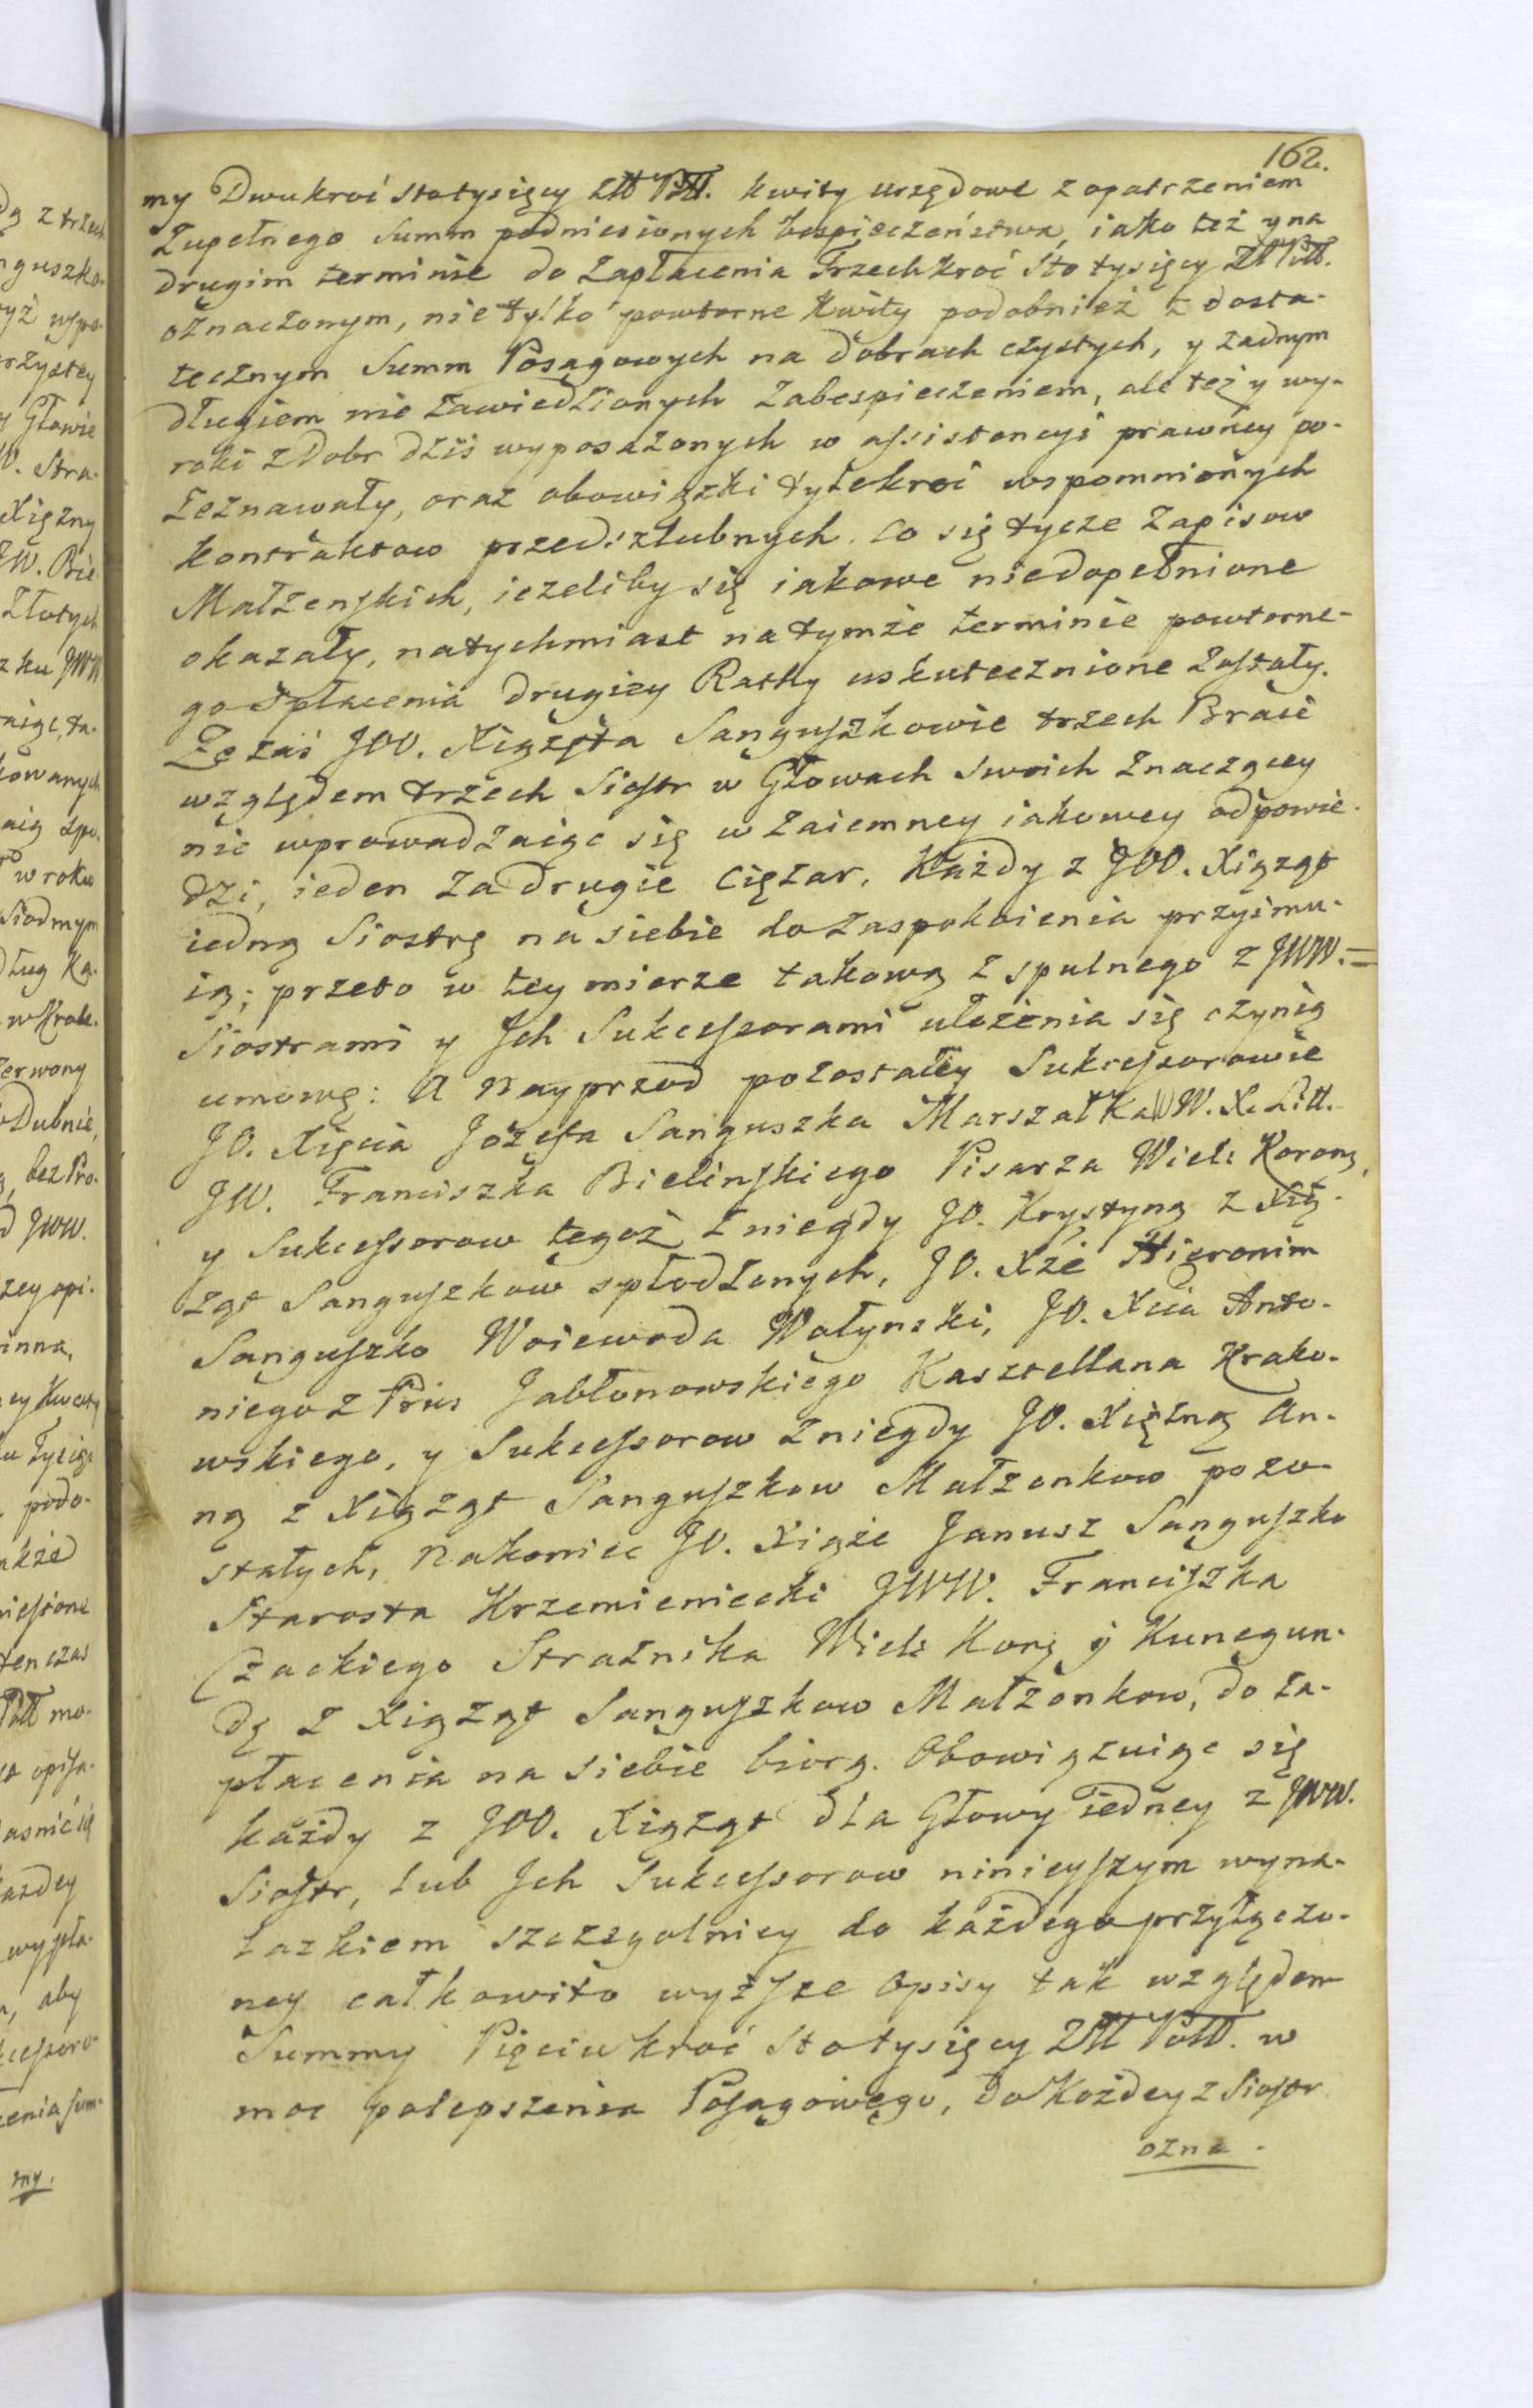 162.
my Dwukroć stotysięcy Złł Poll. kwity urzędowe z opatrzeniem
zupełnego Summ podniesionych bespieczeństwa, iako też y na
drugim terminie do zapłacenia Trzechkroć Sto tysięcy Zł Poll.
oznaczonym, nietylko powtorne kwity podobnież z dosta-
tecznym Summ Posagowych na dobrach czystych, y żadnym
długiem nie zawiedzionych zabespieczeniem, ale też y wy-
roki z Dobr dziś wyposażonych w assistencyi prawney po-
zeznawały, oraz obowiązki tylekroć wspomnionych
kontraktow przedszlubnych. Co się tycze zapisow
Małżenskich, ieżeliby się iakowe niedopełnione
okazały, natychmiast na tymże terminie powtorne-
go spłacenia drugiey Ratky uskutecznione zostały.
Że zaś JOO. Xiążęta Sanguszkowie trzech Braci
względem trzech Siostr w Głowach swoich znaczącey
nie wprowadzaiąc się w zaiemney iakowey odpowie-
dzi, ieden za drugie ciężar, Każdy z JOO. Xiążąt
iedną Siostrę na siebie do zaspokoienia przyimu-
ią; przeto w tey mierze takową z spulnego z JWW.=
Siostrami y Jch Sukcessorami ułożenia się czynią
umowę: A nayprzod pozostałey Sukcessorowie
JO. Xięcia Józefa Sanguszka Marszałka W. X. Litt.
JW. Franciszka Bielinskiego Pisarza Wiel: Korong,
y Sukcessorow tegoż z niegdy JO. Krystyną z Xią-
ząt Sanguszkow spłodzonych, JO. Xże Hieronim
Sanguszko Woiewoda Wołynski, JO. Xcia Anto-
niego z Prus Jabłonowskiego Kasztellana Krako-
wskiego, y Sukcessorow z niegdy JO. Xiężną An-
ną z Xiążąt Sanguszkow Małżonkow pozo-
stałych, nakoniec JO. Xiąże Janusz Sanguszko
Starosta Krzemieniecki JWW. Franciszka
Czackiego Strażnika Wiel: Korą y Kunegun-
dę z Xiążąt Sanguszkow Małżonkow, do za-
płacenia na siebie biorą. Obowiązuiąc się
każdy z JOO. Xiążąt dla Głowy iedney z JWW.
Siostr, lub Jch Sukcessorow ninieyszym wyna-
lazkiem szczegolniey do każdego przyłączo-
ney całkowito wyższe opisy tak względem
Summy Pięciukroć Stotysięcy Złł Poll. w
moc polepszenia Posagowego, do Każdey z Siostr
ozna-